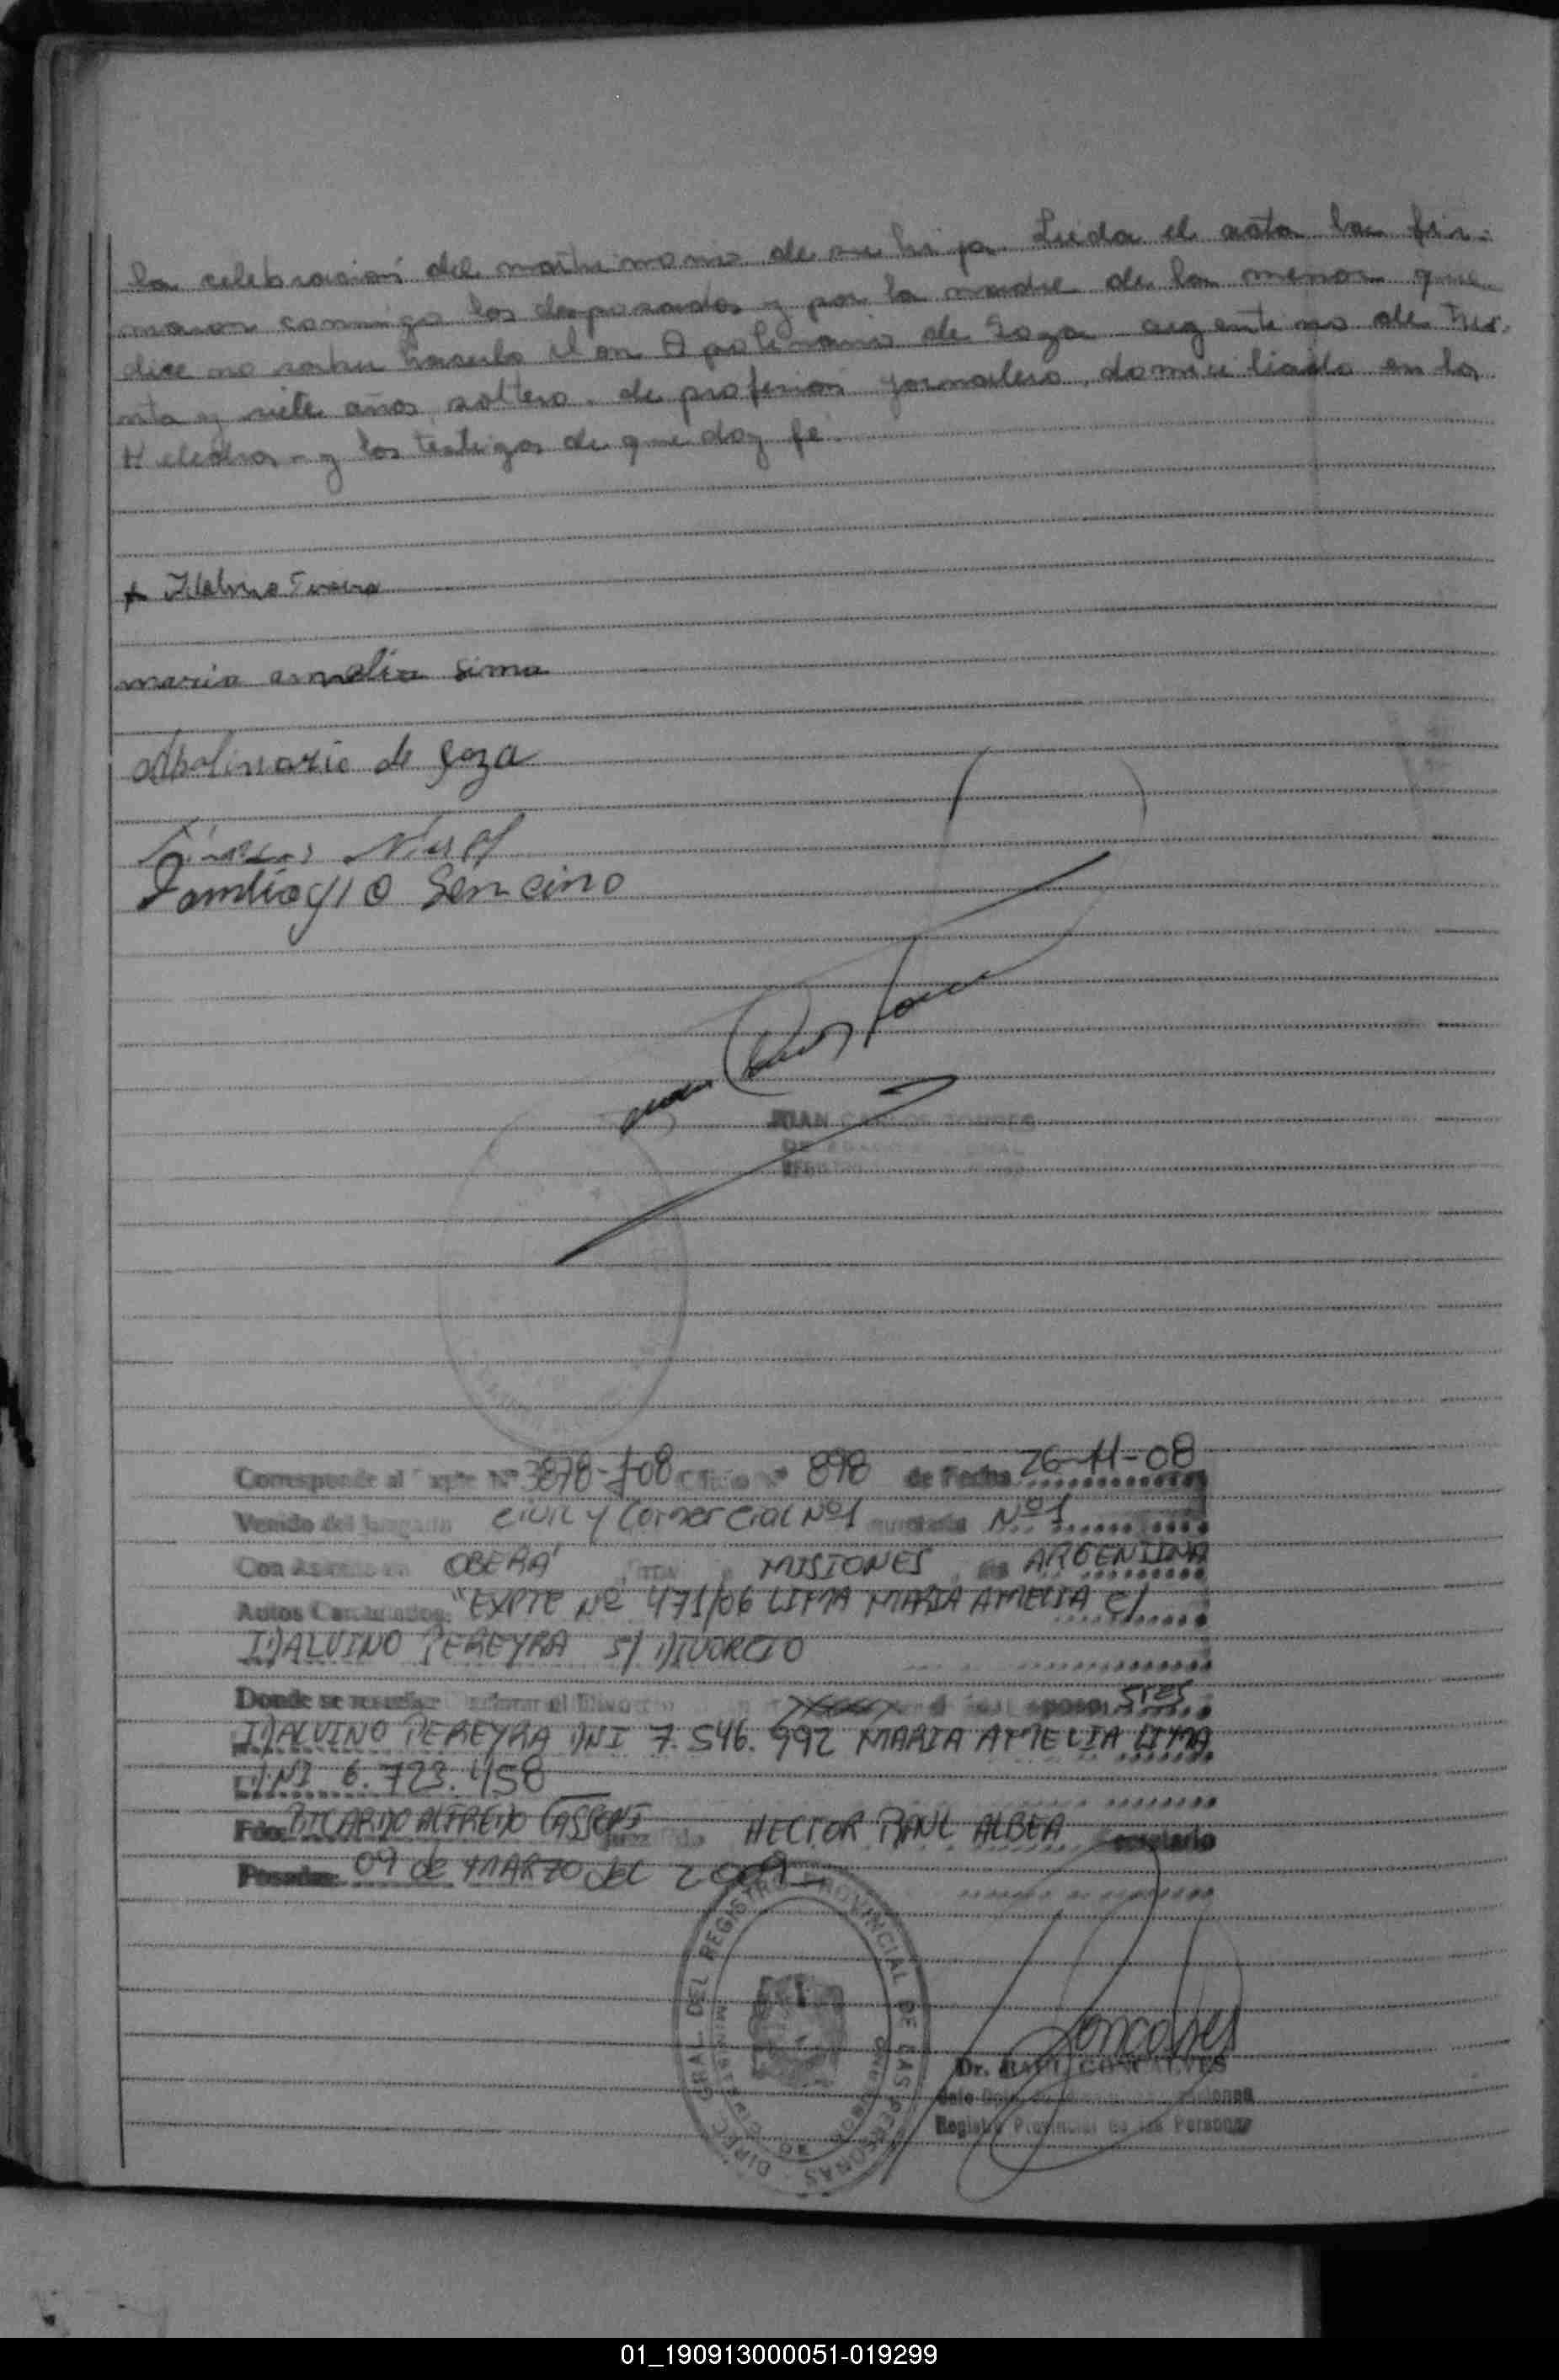 la celebracion del matrimonio de su hija. Leida el acta la fir-
maron conmigo los desposados y por la madre de la menor que
dice no saber hacerlo don Apolinario de Goza argentino de trei-
nta y siete años, soltero, de profesion jornalero, domiciliado en la
y los testigos de que doy fe.
maria amelia Lima
Apolinario de Goza
JUAN CARLOS TORRES
REGISTRO
Corresponde al Expte Nº 3878-J-08 Oficio Nº 898 de Fecha 26-11-08
Venido del Juzgado CIVIL y Comercial Nº1 Secretaria Nº1
Con Asiento en OBERA MISIONES ARGENTINA
Autos Caratulados: "EXPTE Nº 471/06 LIMA MARIA AMELIA C/
IDALVINO PEREYRA S/ DIVORCIO
Donde se resuelve: Declarar el Divorcio esposos SRES
IDALVINO PEREYRA DNI 7.546.992 MARIA AMELIA LIMA
D.NI 6.723.458
Fdo: RICARDO ALFREDO Juez Fdo HECTOR RAUL ALBEA Secretario
Posadas 09 de MARZO del 2009
DIREC. GRAL. DEL REGISTRO PROVINCIAL DE LAS PERSONAS
MINISTERIO DE GOBIERNO
Dr. RAUL GONCALVES
Registro Provincial de las Personas
01_190913000051-019299